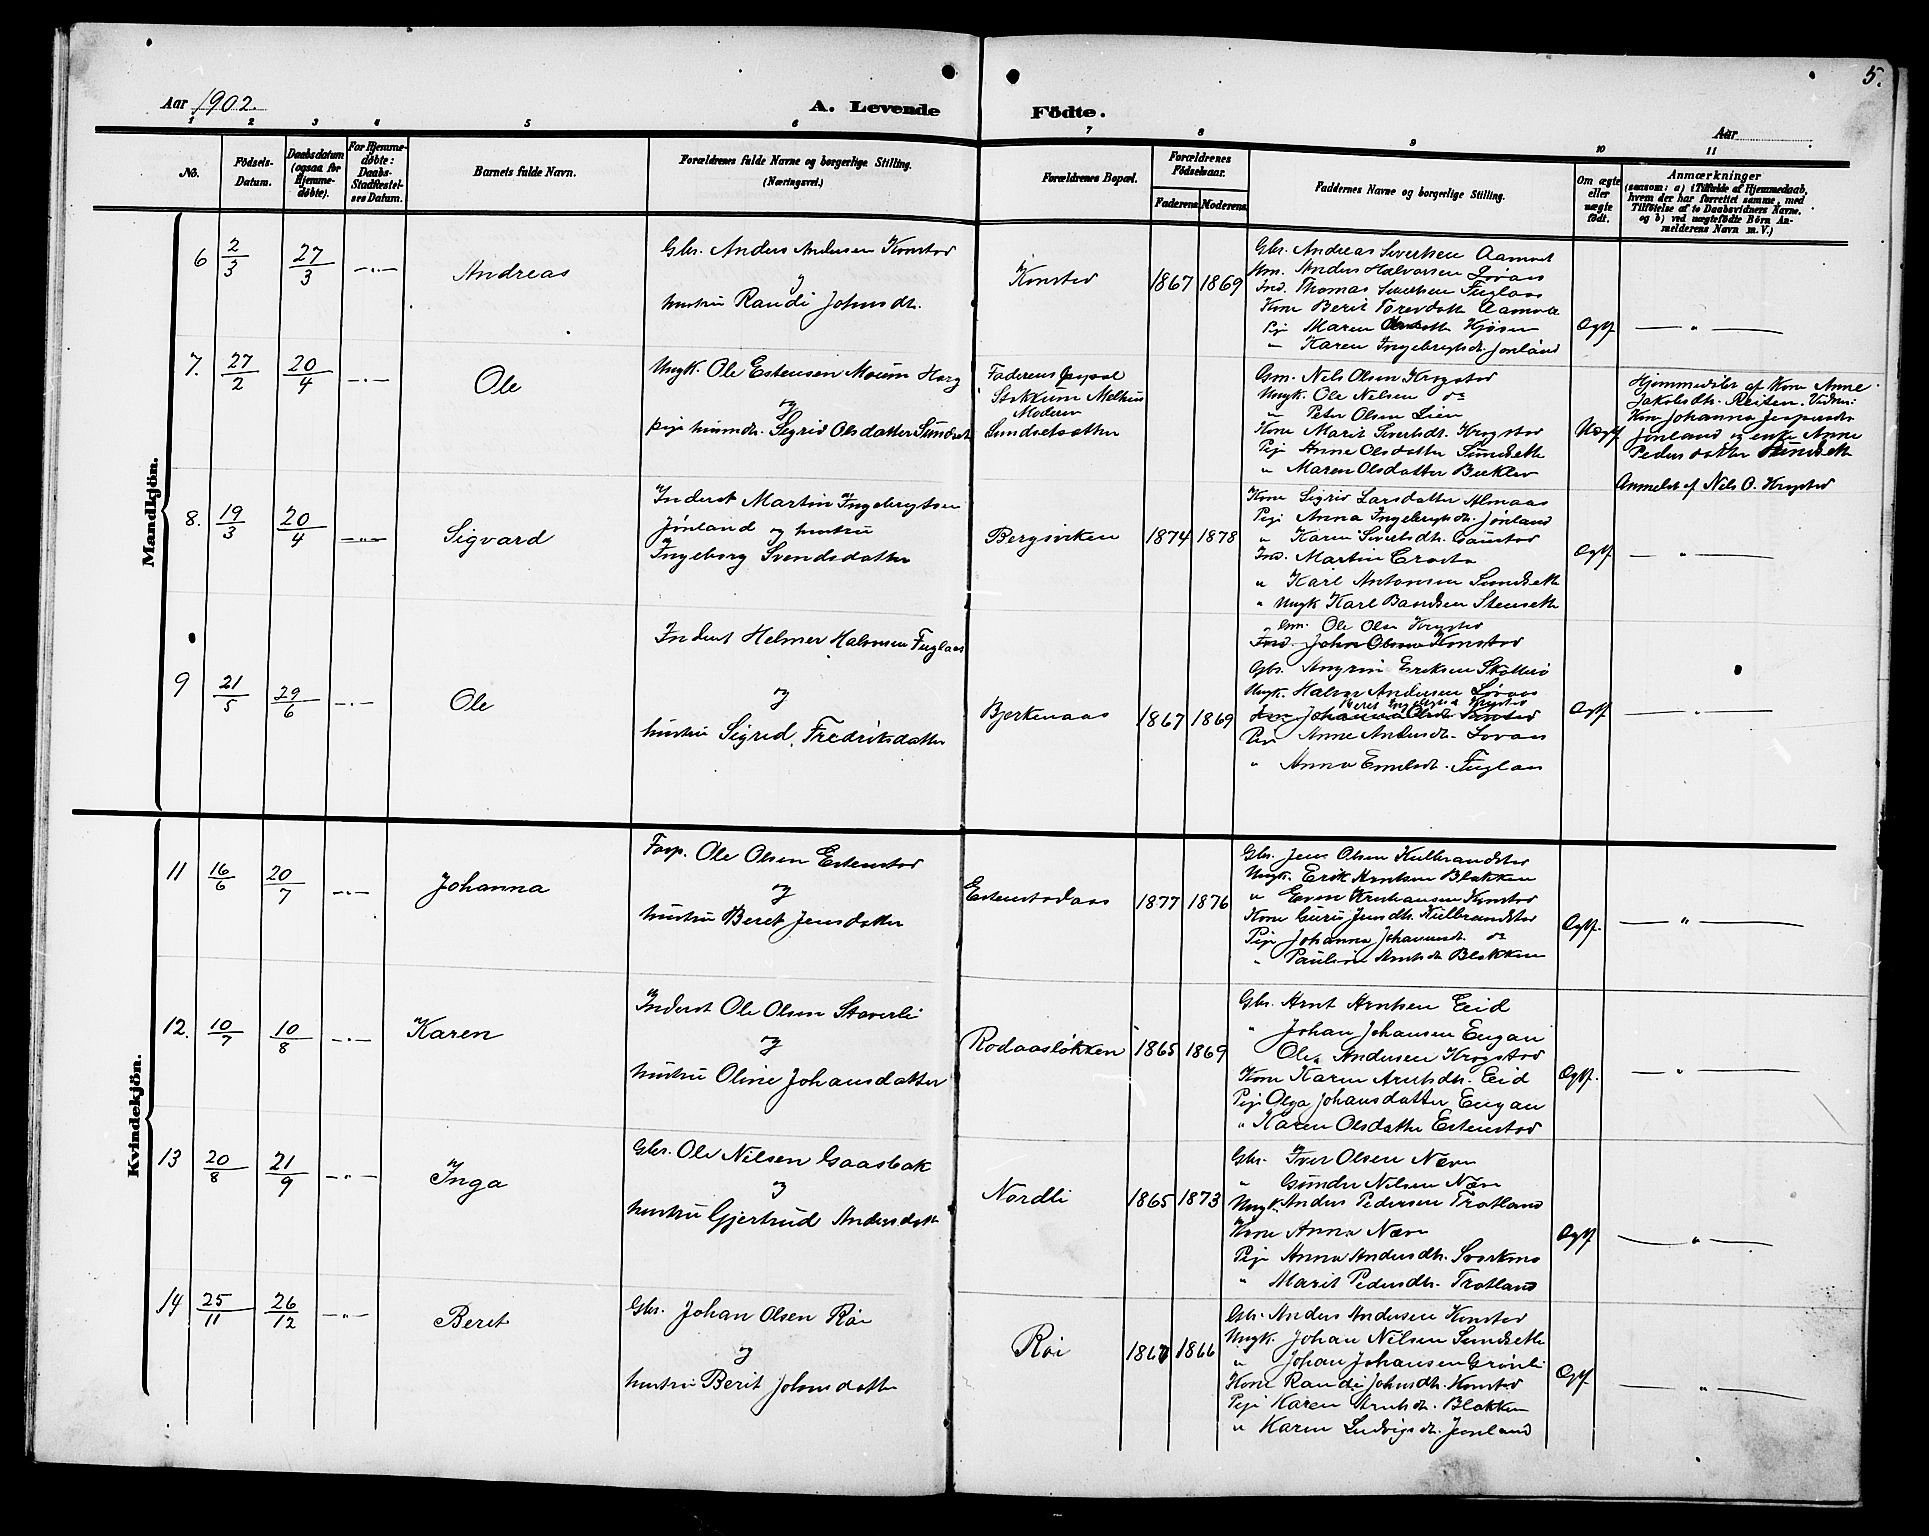 5.
Aar 1902.
A. Levende Födte.
Aar
1 2 3 4 5 6 7 8 9 10 11
No.
Födsels-Datum.
Daabsdatum (ogsaa for Hjemmedøbte).
For Hjemmedøbte: Daabs-Stadfestelses Datum.
Barnets fulde Navn.
Forældrenes fulde Navne og borgerlige Stilling.
(Næringsvei.)
Forældrenes Bopæl.
Forældrenes Födselsaar.
Faderens Moderens
Faddernes Navne og borgerlige Stilling.
Om ægte eller uægte födt.
Anmærkninger
(saasom: a) i Tilfælde af Hjemmedaab,
hvem der har forrettet samme, med
Tilföielse af to Daabsvidners Navne.
og b) ved uægtefödte Börn An-
melderens Navn m. V.)
Mandkjön.
6 2/3 27/3 Andreas
Gbr. Anders Andersen Konstad
og
hustru Randi Johnsdt.
Konstad 1867 1869
Gbr. Andreas Sivertsen Aamot
Gm. Anders Halvorsen Løvaas
Ind. Thomas Sivertsen Fuglaas
Kone Berit Toresdatt Aamot
Pige Maren Kjøsen
" Karen Ingebrigtsdt. Jønland
Ægtf.
7. 27/2 20/4 Ole
Ungk. Ole Estensen Moum Horg
og
pige husmdt. Sigrid Olsdatter Sundset
Faderens bopæl
Stokkum Melhus
Moderen
Sundsetsætter
Gm. Nels Olsen Krogstad
Ungk. Ole Nelsen do
" Peter Olsen Lien
Kone Marit Sivertsdt. Krogstad
Pige Anne Olsdatter Sundseth
" Maren Olsdatter
Uægtf.
Hjemmedøbt af Kone Anne
Jakobsdt. Reiten. Vidner:
Kone Johanna Jespersdtr
Jønland og enke Anne
Pedersdatter Sundseth
Anmeldt af Nels O. Krogstad
8. 19/3 20/4 Sigvard
Inderst Martin Ingebrigtsen
Jønland og hustru
Ingeborg Svendsdatter
Bergsviken 1874 1878
Kone Sigrid Larsdatter Almaas
Pige Anna Ingebrigtsdt. Jønland
" Karen Sivertsdt. Gaustad
Ind. Martin
" Karl Antonsen Sundseth
" Ungk Karl Stenseth
Ægtf.
9 21/5 29/6 Ole
Inderst Helmer Halvorsen Fuglaas
og
hustru Sigrid Fredriksdatter
Bjerkenaas 1867 1869
Gm. Ole Olsen Krogstad
Ind. John Olsen Konstad
Gbr. Eriksen
Ungk. Halvor Andersen Løvaas
Beret Krogstad
Kone Johanna Olsdt. Konstad
Pige Anne Andersdt. Løvaas
" Anna Fuglaas
Ægtf.
Kvindekjön.
11 16/6 20/7 Johanna
Forp. Ole Olsen Estenstad
og
hustru Beret Jensdatter
Estenstadaas 1877 1876
Gbr. Jens Olsen Kulbrandstad
Ungk. Erik Arntsen Blakken
" Even Konstad
Kone Guru Jensdt. Kulbrandstad
Pige Johanna Johannesdt. do
" Pauline Arntsdt. Blakken
Ægtf.
12. 10/7 10/8 Karen
Inderst Ole Olsen Staverli
og
hustru Oline Johansdatter
Rodaasløkken 1865 1869
Gbr. Arnt Arntsen Eid
" Johan Johansen Engan
Ole Andersen Krogstad
Kone Karen Arntsdt. Eid
Pige Olga Johansdatter Engan
" Karen Olsdatter Estenstad
Ægtf.
13 20/8 21/9 Inga
Gbr. Ole Nilsen Gaasbak
og
hustru Gjertrud Andersdatt
Nordli 1865 1873
Gbr. Iver Olsen Næve
" Gunder Nilsen Næve
Ungk. Anders Pedersen Trotland
Kone Anna Næve
Pige Anna Andersdt. Svorkmo
" Marit Pedersdt. Trotland
Ægtf
14 25/11 26/12 Beret
Gbr. Johan Olsen Røi
og
hustru Berit Johnsdatter
Røi 1866
Gbr. Anders Andersen Konstad
Ungk. Johan Nilsen Sundseth
" Johan Johansen Grønli
Kone Randi Johnsdt. Konstad
Pige Karen Arntsdt. Blakken
" Karen Ludvigsdt. Jønland
Ægtf.